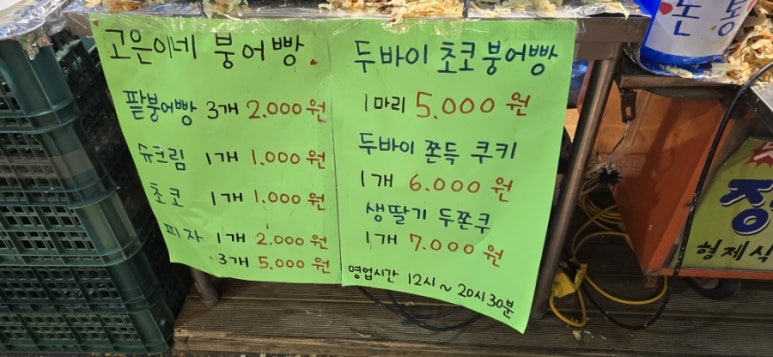 고은이네 붕어빵
팥붕어빵 3개 2.000원
슈크림 1개 1.000원
초코 1개 1.000원
피자 1개 2.000원
3개 5.000원
두바이 초코붕어빵
1마리 5.000원
두바이 쫀득 쿠키
1개 6.000원
생딸기 두쫀쿠
1개 7.000원
영업시간 12시~20시30분
형제식